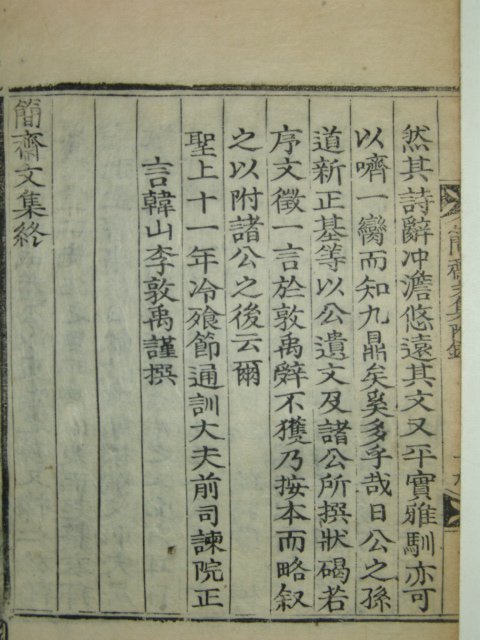 然其詩辭冲澹悠遠其文又平實雅馴亦可
以嚌一臠而知九鼎矣奚多乎哉日公之孫
道新正基等以公遺文及諸公所撰狀碣若
序文徵一言於敦禹辭不獲乃按本而略叙
之以附諸公之後云爾
聖上十一年冷飱節通訓大夫前司諫院正
言韓山李敦禹謹撰
簡齋文集終